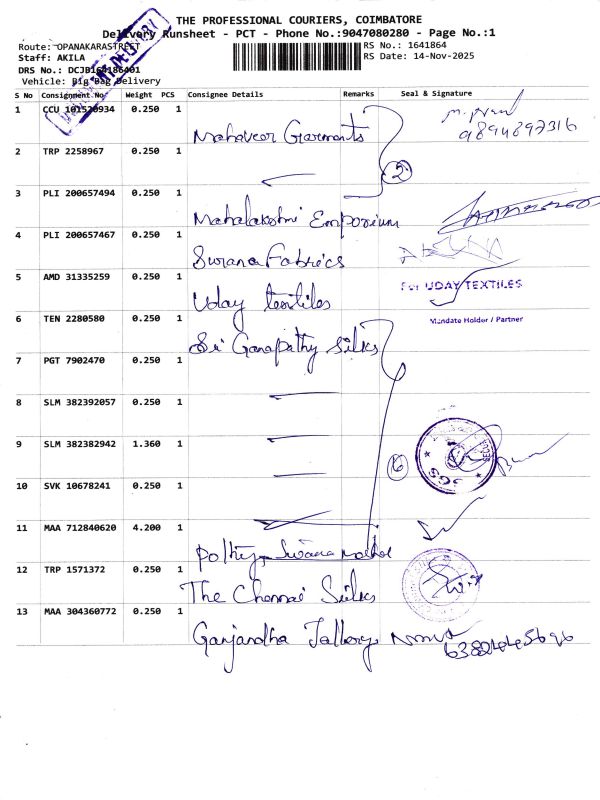 THE PROFESSIONAL COURIERS, COIMBATORE
Delivery Runsheet - PCT - Phone No.:9047080280 - Page No.:1
Route: OPANAKARASTREET
RS No.: 1641864
Staff: AKILA
RS Date: 14-Nov-2025
DRS No.:
Vehicle: Big Bag Delivery
S No Consignment No Weight PCS Consignee Details Remarks Seal & Signature
1 CCU 101520934 0.250 1 Mahaveer Garments 9894897316
2 TRP 2258967 0.250 1
2
3 PLI 200657494 0.250 1 Mahalakshmi Emporium
4 PLI 200657467 0.250 1 Surana Fabrics
5 AMD 31335259 0.250 1 Uday textiles
For UDAY TEXTILES
Mandate Holder / Partner
6 TEN 2280580 0.250 1 Sri Ganapathy Silks
7 PGT 7902470 0.250 1
8 SLM 382392057 0.250 1
9 SLM 382382942 1.360 1
6
SGS
10 SVK 10678241 0.250 1
11 MAA 712840620 4.200 1 Pothys
12 TRP 1571372 0.250 1 The Chennai Silks
13 MAA 304360772 0.250 1